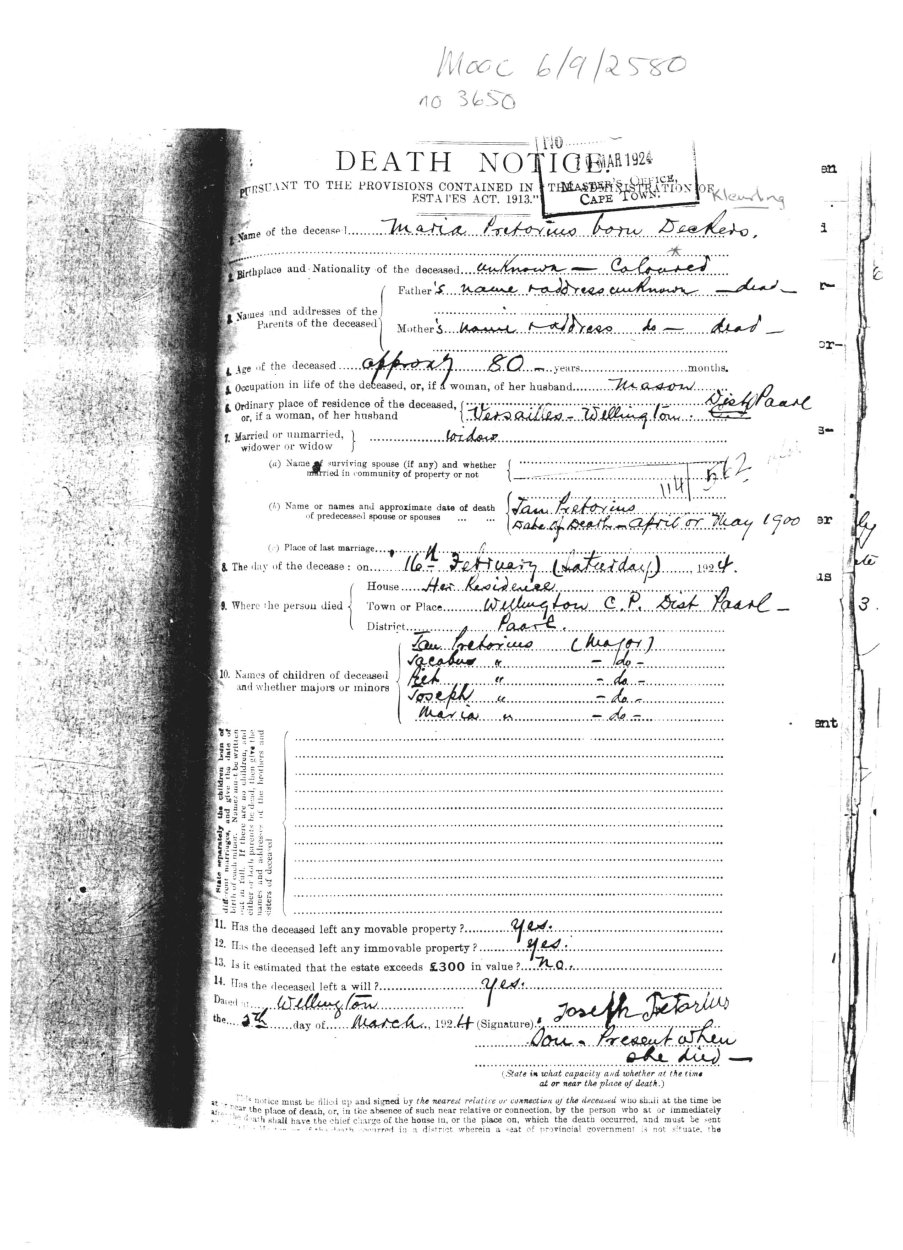 MOOC 6/9/2580
no 3650
NO
10 MAR 1924
MASTER'S OFFICE,
CAPE TOWN.
DEATH NOTICE.
PURSUANT TO THE PROVISIONS CONTAINED IN "THE ADMINISTRATION OF
ESTATES ACT, 1913."
Kleurling
1. Name of the deceased Maria Pretorius born Deckers.
2. Birthplace and Nationality of the deceased unknown — Coloured
3. Names and addresses of the Parents of the deceased
Father's name & address unknown — dead —
Mother's name & address do — dead —
4. Age of the deceased approxy 80 — years months.
5. Occupation in life of the deceased, or, if a woman, of her husband Mason
6. Ordinary place of residence of the deceased, or, if a woman, of her husband
Versailles - Wellington. Dist Paarl
7. Married or unmarried, widower or widow
widow
(a) Name of surviving spouse (if any) and whether married in community of property or not
114
(b) Name or names and approximate date of death of predeceased spouse or spouses ... ...
Jan Pretorius
Date of Death - April or May 1900
(c) Place of last marriage
8. The day of the decease: on 16th February (Saturday), 1924.
9. Where the person died
House Her Residence
Town or Place Wellington C.P. Dist Paarl —
District Paarl.
10. Names of children of deceased and whether majors or minors
Jan Pretorius (Major)
Jacobus " - do -
Piet " - do -
Joseph " - do -
Maria " - do -
State separately the children born of
different marriages, and give the date of
birth of each minor. Names must be written
out in full. If there are no children, and
either or both parents be dead, then give the
names and addresses of the brothers and
sisters of deceased
11. Has the deceased left any movable property? Yes.
12. Has the deceased left any immovable property? yes.
13. Is it estimated that the estate exceeds £300 in value? No.
14. Has the deceased left a will? Yes.
Dated at Wellington
the 5th day of March, 1924 (Signature). Joseph Pretorius
Son - Present when
she died —
(State in what capacity and whether at the time
or near the place of death.)
This notice must be filled up and signed by the nearest relative or connection of the deceased who shall at the time be
at or near the place of death, or, in the absence of such near relative or connection, by the person who at or immediately
after the death shall have the chief charge of the house in, or the place on, which the death occurred, and must be sent
of the death occurred in a district wherein a seat of provincial government is not situate, the
en
i
r-
or-
s-
er
is
ent
ly
ate
3.